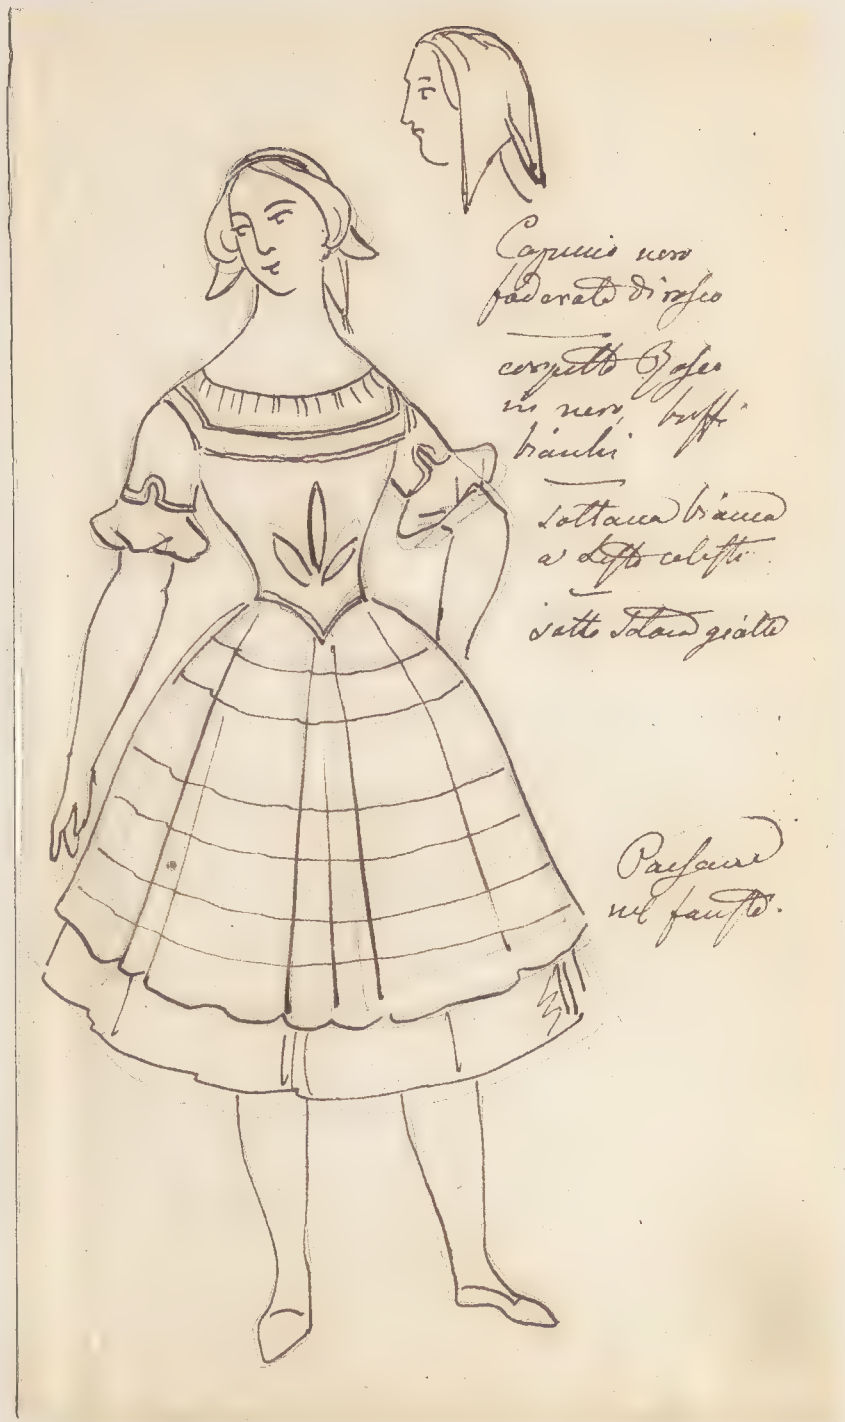 Capucio nero
foderato di roseo
corpetto Roseo
in nero, buffi
bianchi
sottana bianca
a liste celesti
sotto gialla
Paesane
nel fausto.